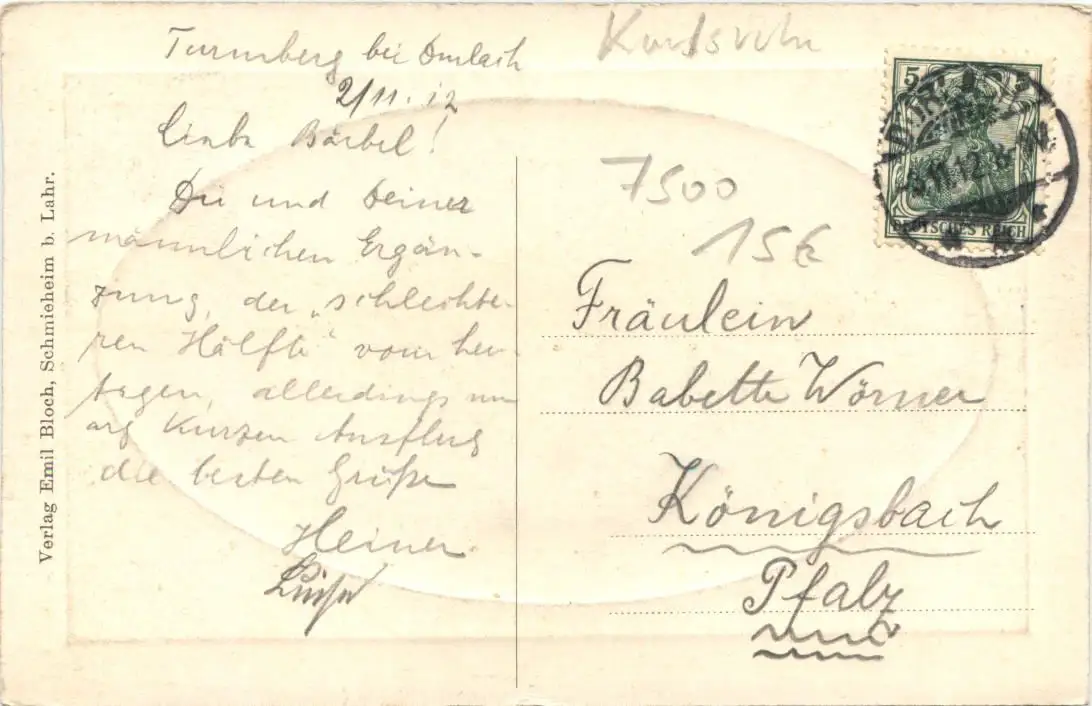 Turmberg bei Durlach
2/11.12
Karlsruhe
Liebe Bärbel!
Dir und Deiner
männlichen Ergän-
zung, der „schlechte-
ren Hälfte" vom heu-
tigen, allerdings nur
arg kurzen Ausflug
die besten Grüße
Heiner.
Luise
7500
15€
5
DEUTSCHES REICH
11.12.
Fräulein
Babette Wörner
Königsbach
Pfalz
Verlag Emil Bloch, Schmieheim b. Lahr.